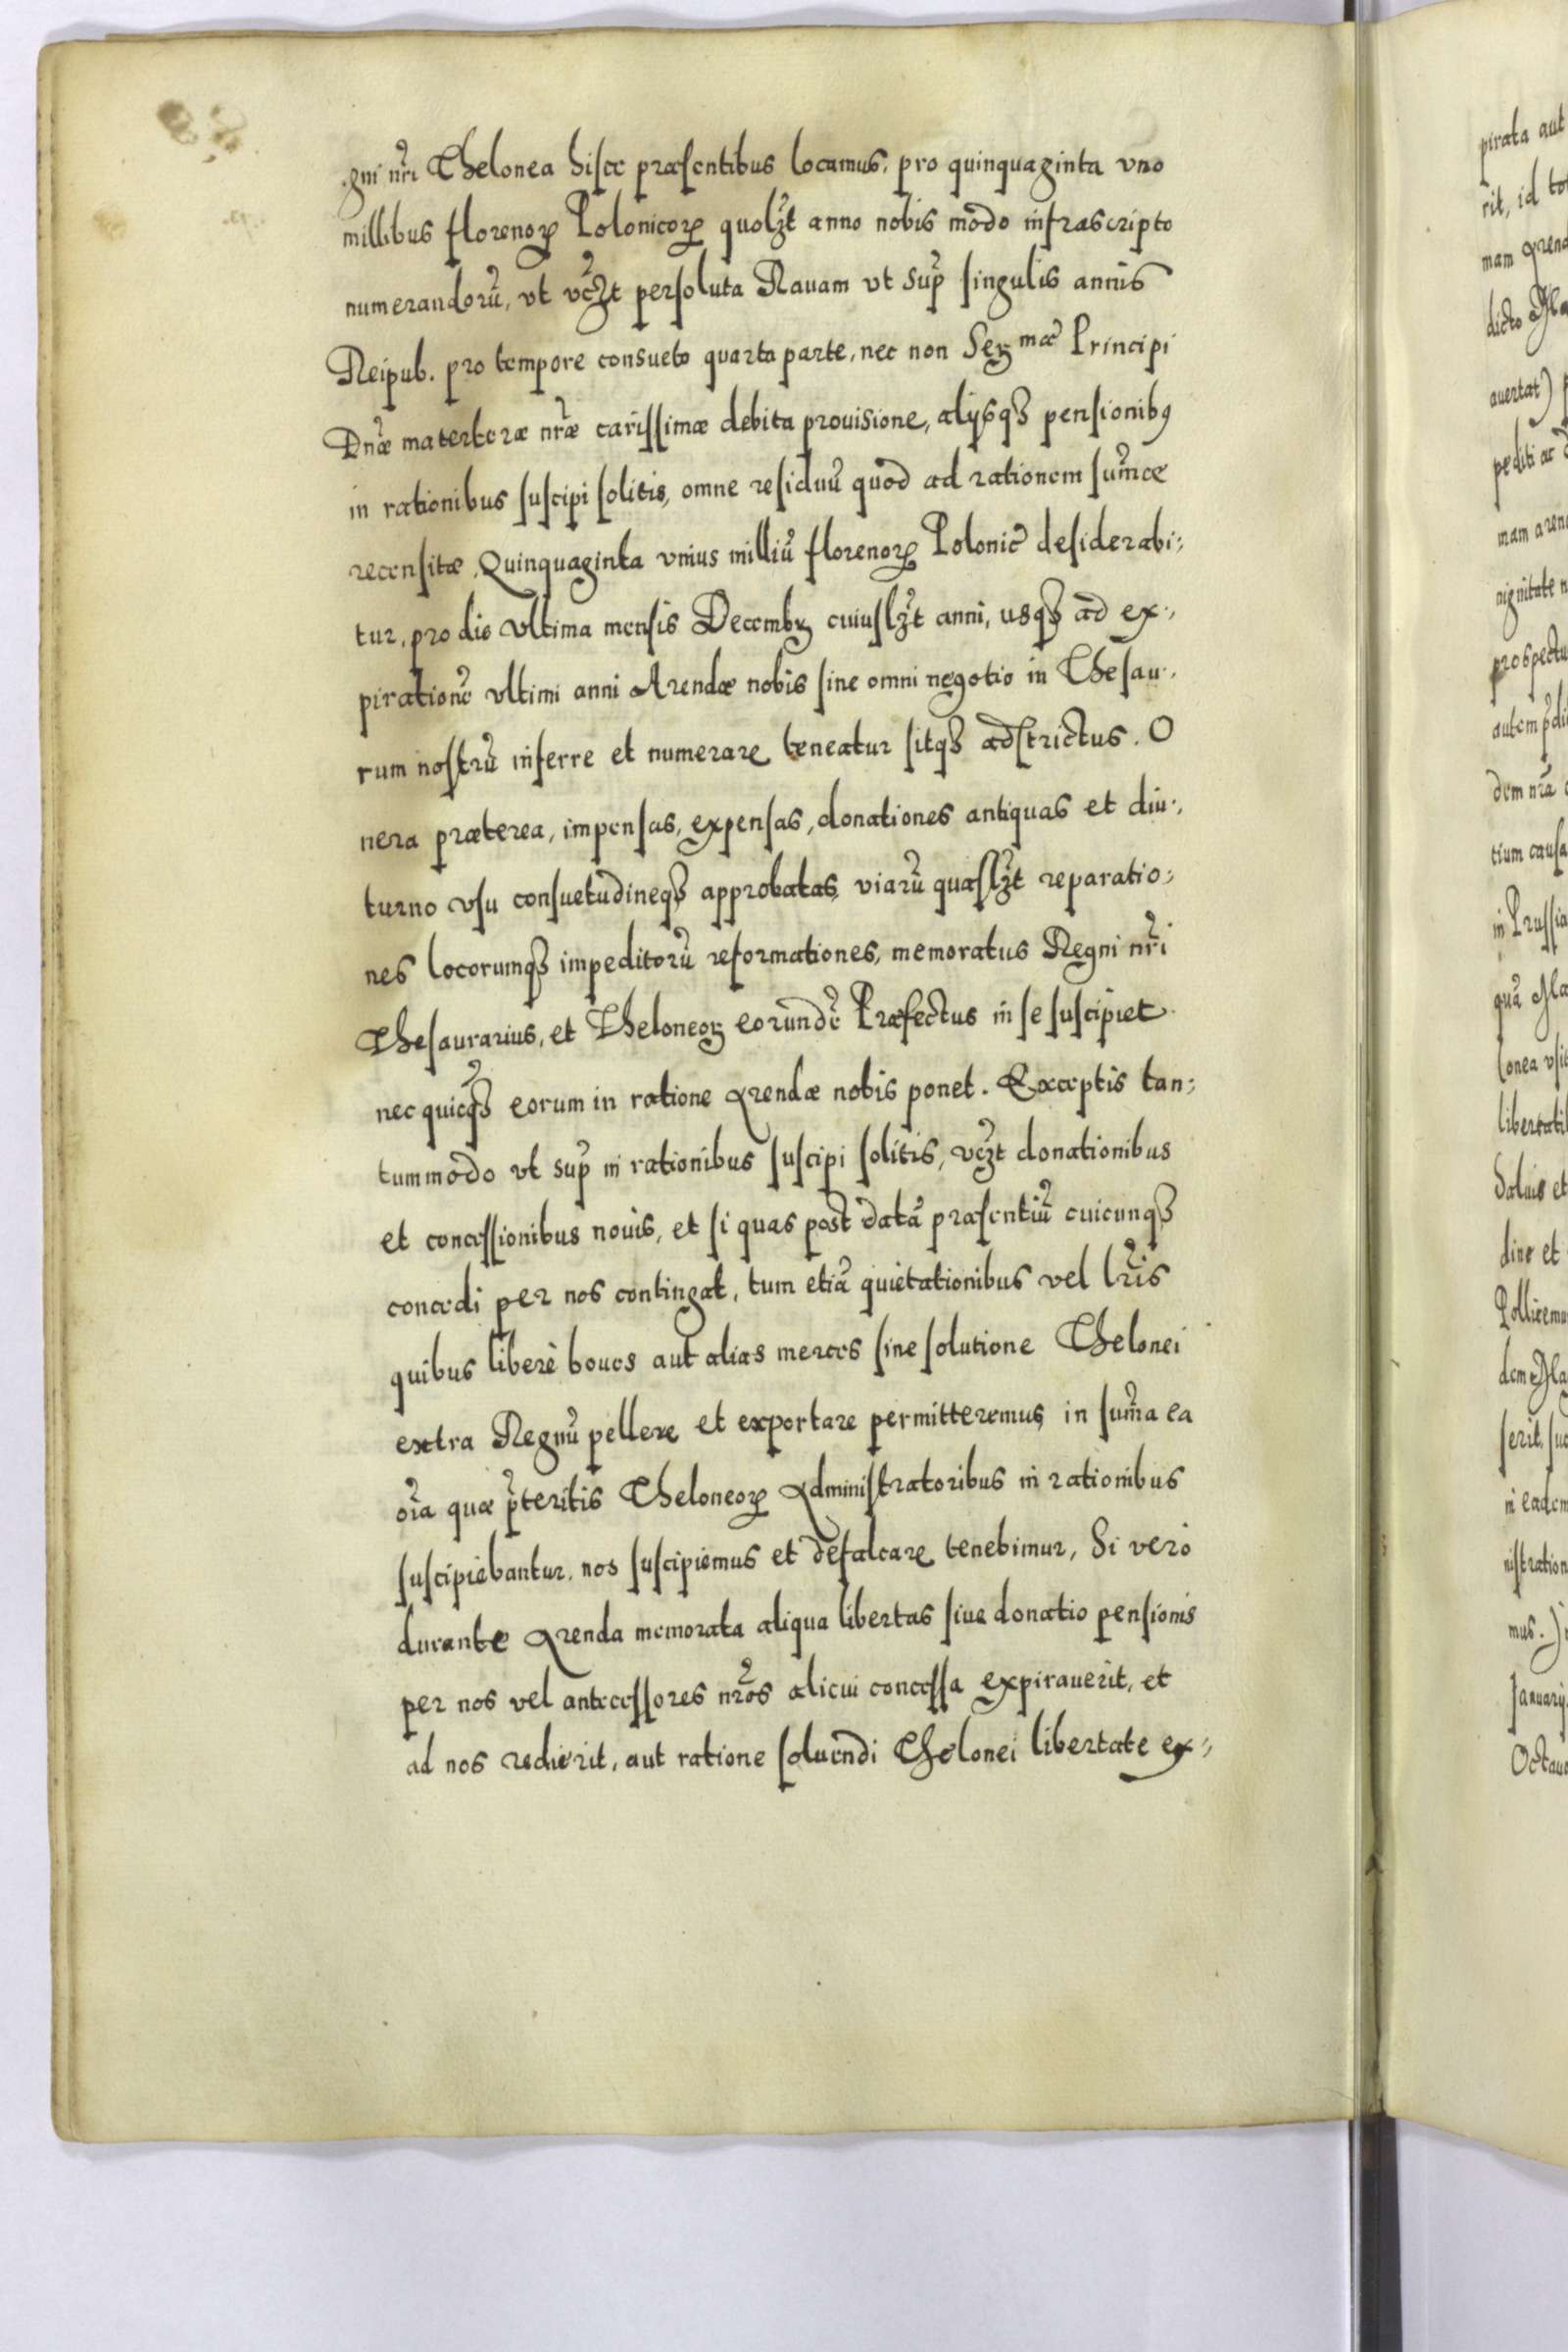 gni nr̃i Thelonea hisce præsentibus locamus, pro quinquaginta vno
millibus florenoꝝ Polonicoꝝ quolꝫt anno nobis modo infrascripto
numerandorũ, vt vcꝫt persoluta Rauam vt sup̃ singulis annis
Reipub. pro tempore consueto quarta parte, nec non Serᵐᵃᵉ Principi
Dnæ materteræ nr̃æ carissimæ debita prouisione, alijsqꝫ pensionibꝰ
in rationibus suscipi solitis, omne residuũ quod ad rationem sum̃æ
recensitæ Quinquaginta vnius milliũ florenoꝝ Polonic̃ desiderabi:
tur, pro die vltima mensis Decembꝝ cuiuslꝫt anni, usqꝫ ad ex:
pirationẽ vltimi anni Arendæ nobis sine omni negotio in Thesau:
rum nostrũ inferre et numerare teneatur sitqꝫ adstrictus. O
nera præterea, impensas, expensas, donationes antiquas et diu:
turno vsu consuetudineqꝫ approbatas, viarũ quaslꝫt reparatio:
nes locorumqꝫ impeditorũ reformationes, memoratus Regni nr̃i
Thesaurarius, et Theloneoꝝ eorundẽ Præfectus in se suscipiet
nec quicqꝫ eorum in ratione Arendæ nobis ponet. Exceptis tan:
tummodo vt sup̃ in rationibus suscipi solitis, vcꝫt donationibus
et concessionibus nouis, et si quas post datã præsentiũ cuicunqꝫ
concædi per nos contingat, tum etiã quietationibus vel lr̃is
quibus liberè boues aut alias merces sine solutione Thelonei
extra Regnũ pellere et exportare permitteremus, in sum̃a ea
oĩa quæ p̃teritis Theloneoꝝ Administratoribus in rationibus
suscipiebantur, nos suscipiemus et defalcare tenebimur, Si vero
durante Arenda memorata aliqua libertas siue donatio pensionis
per nos vel antecessores nr̃os alicui concessa expirauerit, et
ad nos redierit, aut ratione soluendi Thelonei libertate ex: